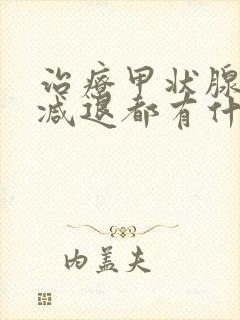 治疗甲状腺
减退都有什
内盖夫